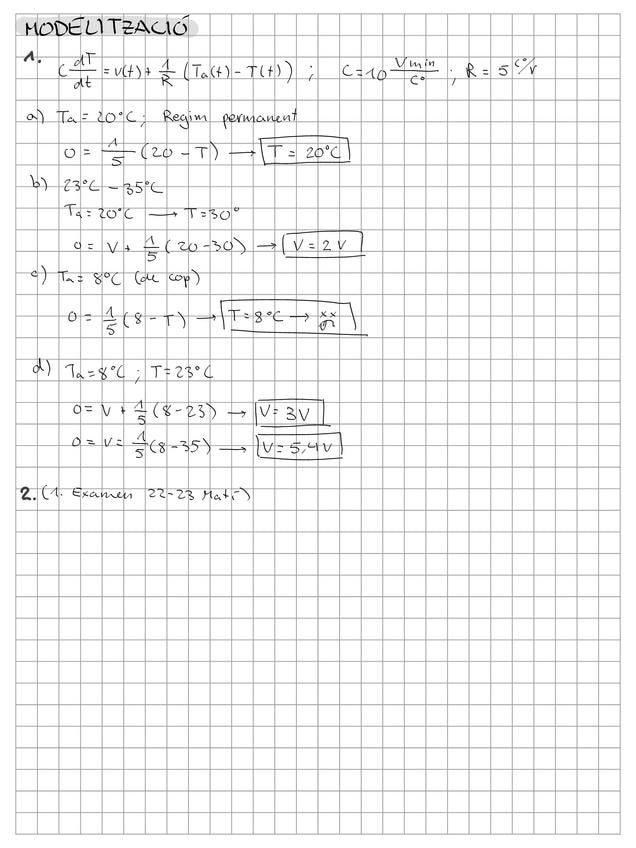 MODELITZACIÓ
1. C dT/dt = v(t) + 1/R (Ta(t) - T(t)) ; C=10 Vmin/C° ; R = 5 C°/V
a) Ta = 20°C; Regim permanent
0 = 1/5 (20 - T) → T = 20°C
b) 23°C - 35°C
Ta = 20°C → T=30°
0 = V + 1/5 (20-30) → V = 2 V
c) Ta = 8°C (de cop)
0 = 1/5 (8 - T) → T = 8°C → xx
d) Ta = 8°C ; T = 23°C
0 = V + 1/5 (8-23) → V = 3V
0 = V = 1/5 (8-35) → V = 5,4V
2. (1. Examen 22-23 Matí)